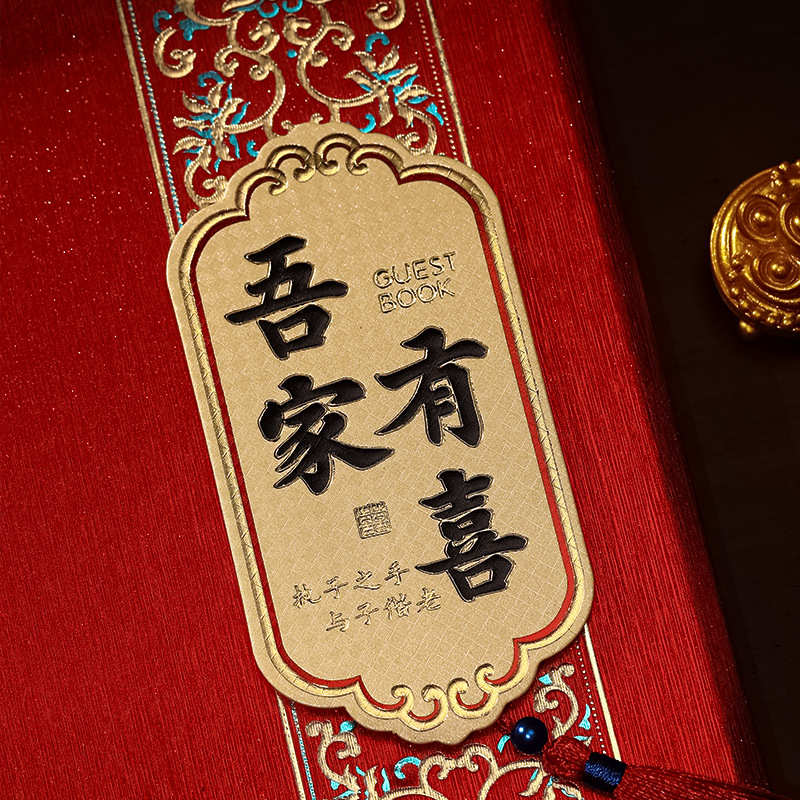 吾家
GUEST
BOOK
有喜
执子之手
与子偕老